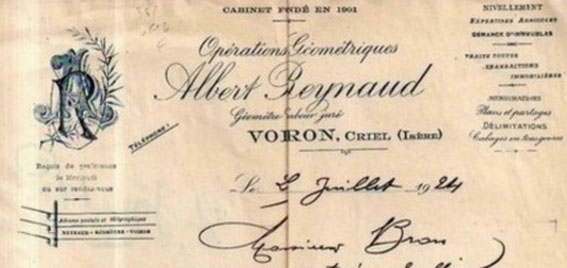 CABINET FNDÉ EN 1901
Opérations Géométriques
Albert Reynaud
Géomètre juré
VORON, CRIEL (ISÈRE)
TÉLÉPHONE:
R
NIVELLEMENT
EXPERTISES AGRICOLES
GÉRANCE D'IMMEUBLES
TRAITE TOUTES
TRANSACTIONS
IMMOBILIÈRES
Plans et partages
DÉLIMITATIONS
Cubages en tous genres
Reçois de préférence
le Mercredi
ou sur rendez-vous
Adresse postale et télégraphique
Le 2 Juillet 1924
Monsieur Bron